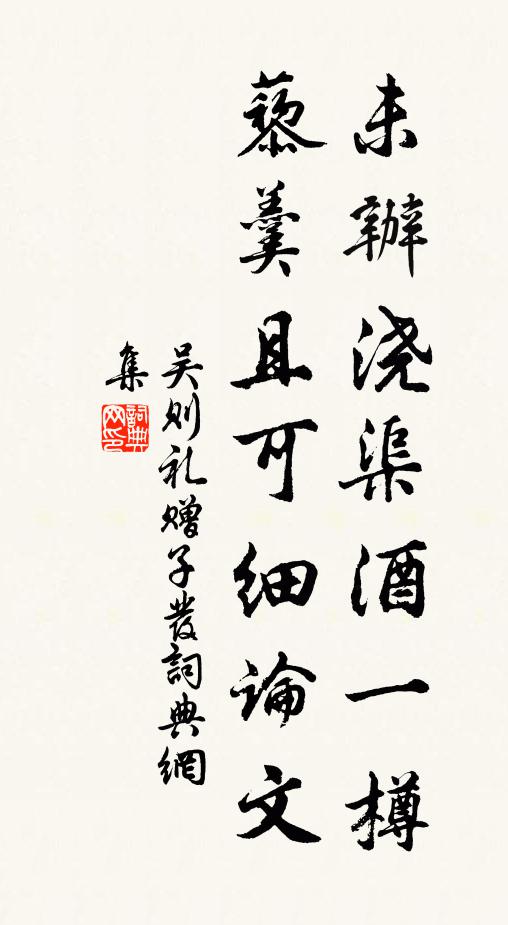 未辦浇渠酒一樽
藜羹且可细論文
吴则礼赠子發詞典網
集
詞典网印